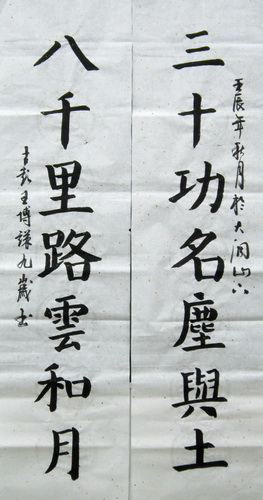 三十功名塵與土
壬辰年秋月於大洞山下
八千里路雲和月
古彭王博謙九歲书